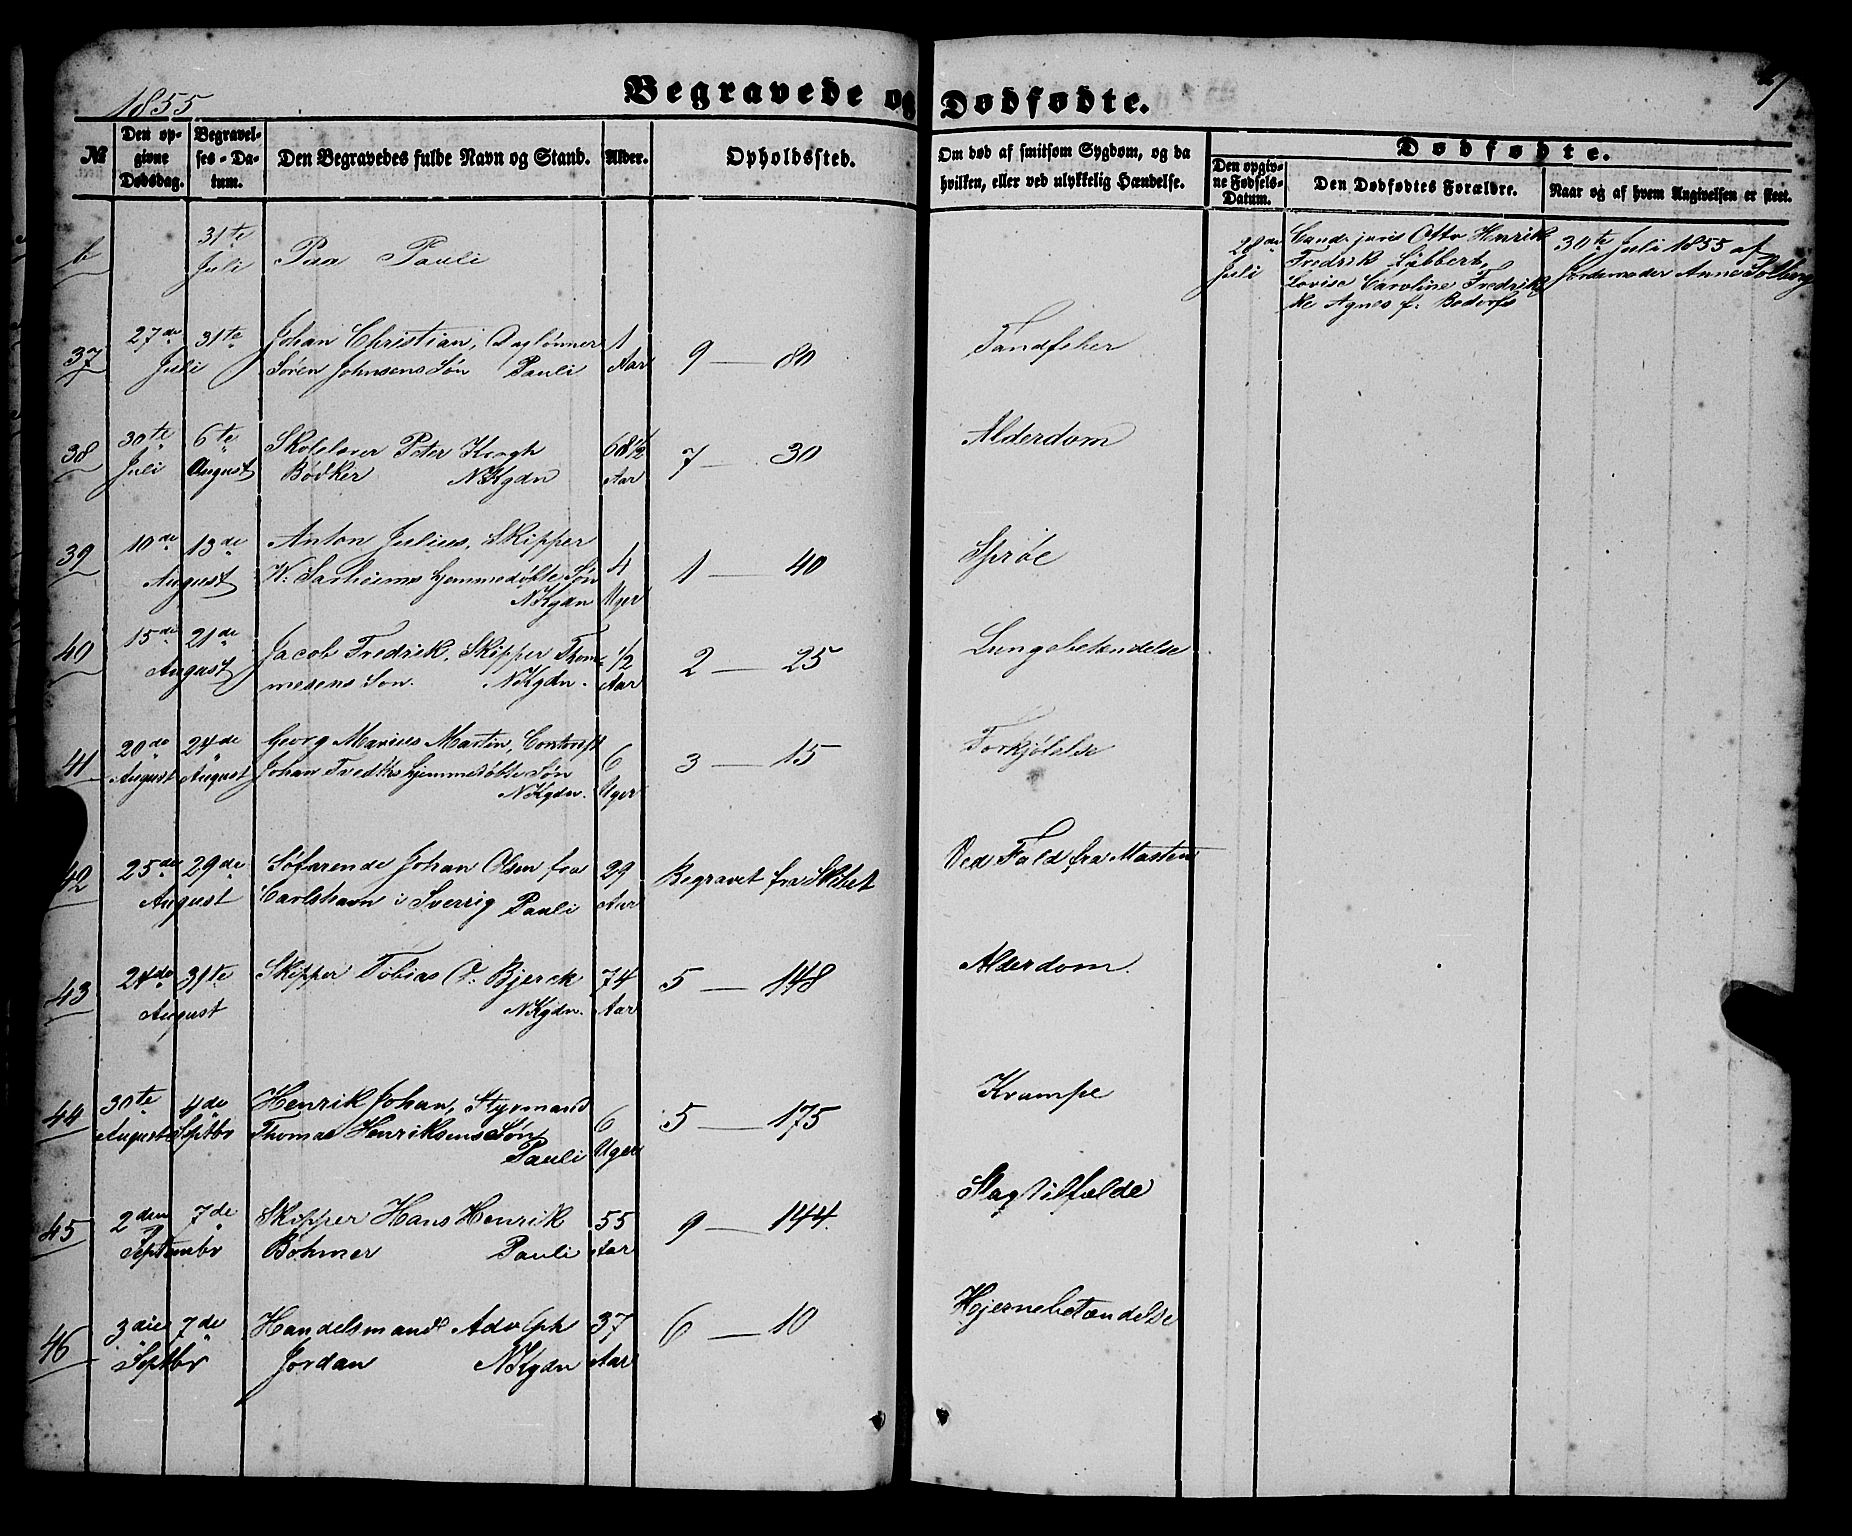 1855
Begravede og Dødfødte.
№
Den opgivne Dødsdag.
Begravelses-Datum.
Den Begravedes fulde Navn og Stand.
Alder.
Opholdssted.
Om død af smitsom Sygdom, og da hvilken, eller ved ulykkelig Hændelse.
Dødfødte.
Den opgivne Fødsels-Datum.
Den Dødfødtes Forældre.
Naar og af hvem Angivelsen er skeet.
6 31te Juli Paa Pauli
28de Juli
Cand. juris Otto Henrik
Fredrik Lübbert,
Lovise Caroline Fredrik-
ke Agnes f.
30te Juli 1855 af
Jordemoder Anne Solberg
37 27de 31te Johan Christian, Daglønner 1 9 — 80 Tandfeber
Juli Søren Johnsens Søn Pauli Aar
38 30te 6te Skolelærer Peter Krogh 68½ 7 — 30 Alderdom
Juli August Bødker NKgdn Aar
39 10de 13de Anton Julius, Skipper 4 1 — 40
August W: hjemmedøbte Søn Uger
NKgdn
40 15de 21de Jacob Fredrik, Skipper Thom- ½ 2 — 25 Lungebetændelse
August mesens Søn. NKgdn. Aar
41 20de 24de Georg Marius Martin, 6 3 — 15 Forkjølelse
August August Johan Fredks hjemmedøbte Søn Uger
NKgdn.
42 25de 29de Søfarende Johan Olsen fra 29 Begravet fra Skibet Ved Fald fra Masten
August Carlshavn i Sverrig Pauli Aar
43 24de 31te Skipper Tobias O. Bjerck 74 5 — 148 Alderdom.
August NKgdn. Aar
44 30te 4de Henrik Johan, Styrmand 6 5 — 175 Krampe
August Septbr Thomas Henriksens Søn Uger
Pauli
45 2den 7de Skipper Hans Henrik 55 9 — 144. Slagtilfælde
Septembr Bøhmer Pauli Aar
46 3die 7de Handelsmand Adolph 37 6 — 10 Hjernebetændelse
Septbr Jordan NKgdn Aar